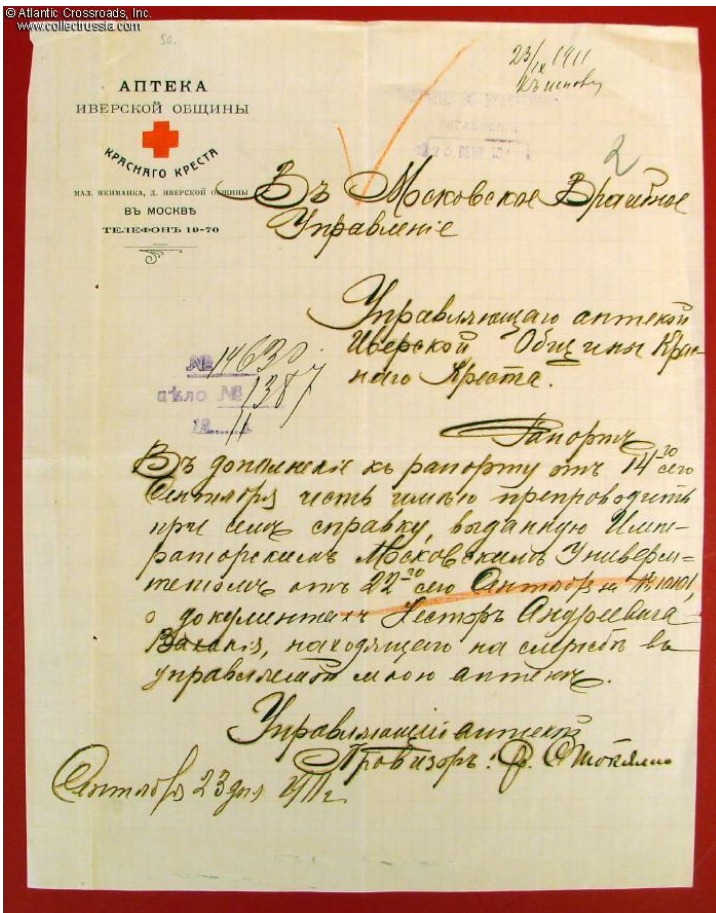 © Atlantic Crossroads, Inc.
www.collectrussia.com
50.
23/IX 1911
АПТЕКА
ИВЕРСКОЙ ОБЩИНЫ
КРАСНАГО КРЕСТА
МАЛ. ЯКИМАНКА, Д. ИВЕРСКОЙ ОБЩИНЫ
ВЪ МОСКВѢ
ТЕЛЕФОНЪ 19-70
2
Въ Московское Врачебное
Управленіе
Управляющаго аптекой
Иверской Общины Крас-
наго Креста.
№ 14630
дѣло № 1387
1911 г.
Рапортъ
Въ дополненіе къ рапорту отъ 14го сего
Сентября честь имѣю препроводить
при семъ справку, выданную Импе-
раторскимъ Московскимъ Универси-
тетомъ отъ 22го сего Сентября за №
о документахъ Нестора Андреевича
находящего на службѣ въ
управляемой мною аптекѣ.
Управляющій аптекой
Провизоръ: Ф.
Сентября 23 дня 1911 г.